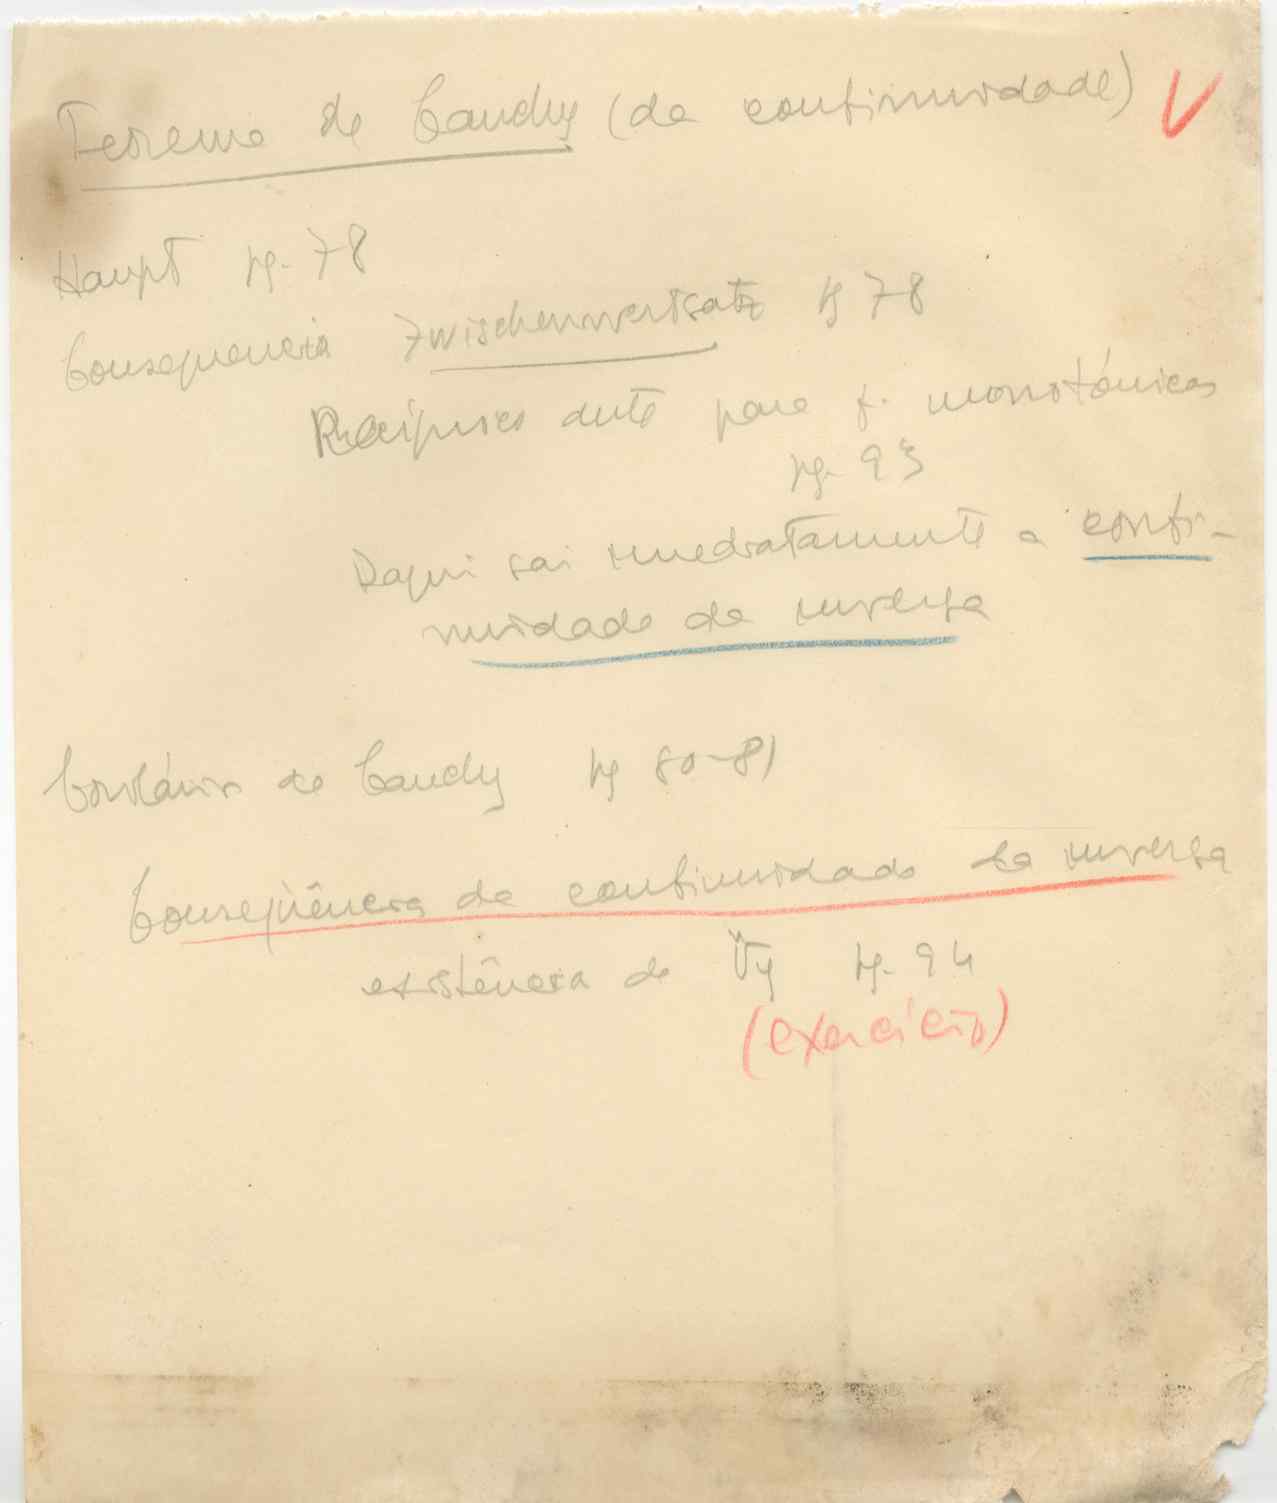 Teorema de Cauchy (da continuidade) V
Haupt pg. 78
Consequencia Zwischenwertsatz pg 78
Recíproco deste para f. monotónicas
pg. 93
Daqui sai imediatamente a conti-
nuidade da inversa
Corolário de Cauchy pg 80-81
Conseqüência da continuidade da inversa
existência de ⁿ√y pg. 94
(exercício)